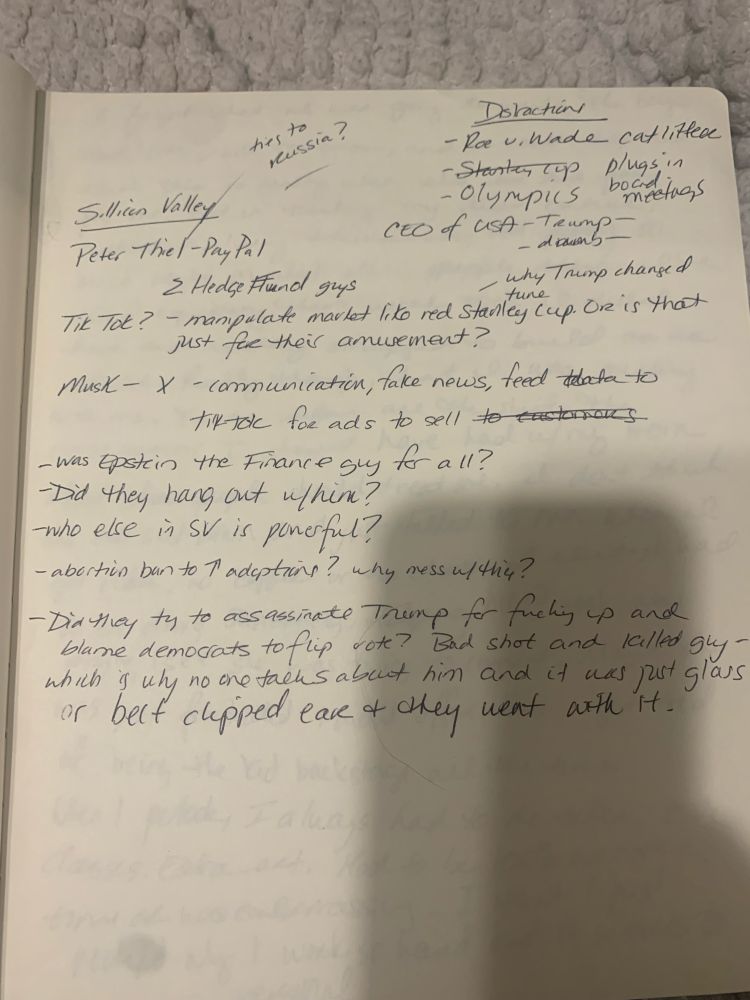 Distractions
- Roe v. Wade cat litter
- Stanley Cup plugs in
- Olympics board meetings
ties to
Russia?
Sillicon Valley
CEO of USA - Trump -
Peter Thiel - PayPal
2 Hedge Fund guys
- why Trump changed
tune
Tik Tok? - manipulate market like red Stanley Cup. Or is that
just for their amusement?
Musk - X - communication, fake news, feed data to
tik tok for ads to sell to customers
- was Epstein the Finance guy for all?
- Did they hang out w/him?
- who else in SV is powerful?
- abortion ban to ↑ adoptions? why mess w/this?
- Did they ty to assassinate Trump for fucking up and
blame democrats to flip vote? Bad shot and killed guy -
which is why no one talks about him and it was just glass
or belt clipped ear & they went with it.